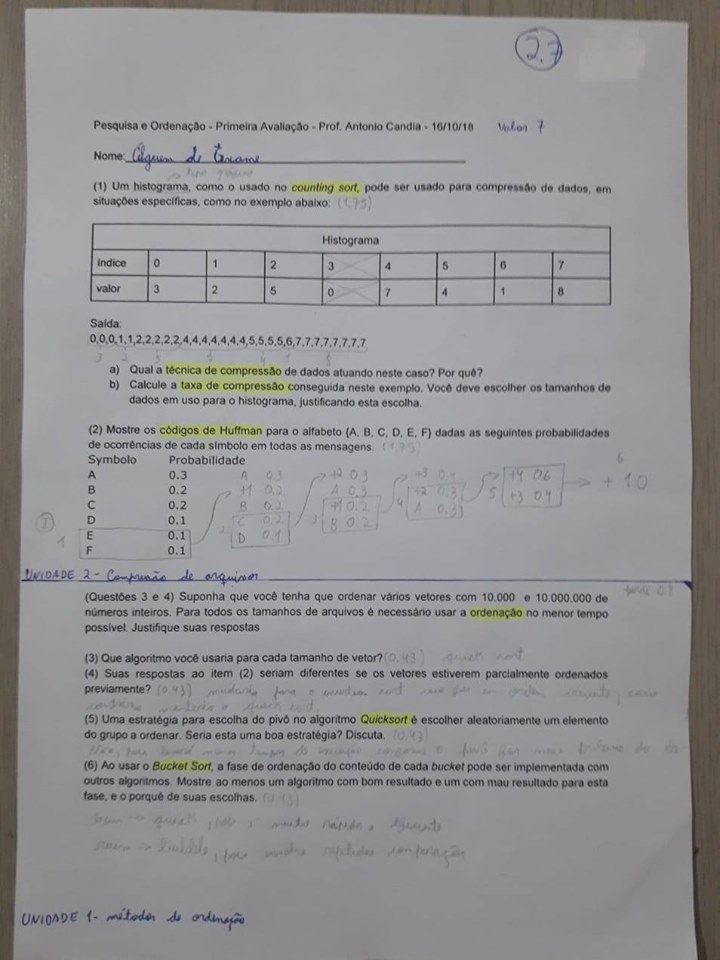 2.7
Pesquisa e Ordenação - Primeira Avaliação - Prof. Antonio Candia - 16/10/18 Valor 7
Nome: de Exame
(1) Um histograma, como o usado no counting sort, pode ser usado para compressão de dados, em
situações específicas, como no exemplo abaixo: (1,75)
Histograma
índice 0 1 2 3 4 5 6 7
valor 3 2 5 0 7 4 1 8
Saída:
0,0,0,1,1,2,2,2,2,2,4,4,4,4,4,4,4,5,5,5,5,6,7,7,7,7,7,7,7,7
a) Qual a técnica de compressão de dados atuando neste caso? Por quê?
b) Calcule a taxa de compressão conseguida neste exemplo. Você deve escolher os tamanhos de
dados em uso para o histograma, justificando esta escolha.
(2) Mostre os códigos de Huffman para o alfabeto {A, B, C, D, E, F} dadas as seguintes probabilidades
de ocorrências de cada símbolo em todas as mensagens. (1,75)
Symbolo Probabilidade
A 0.3 A 0.3
B 0.2
C 0.2 B 0.2
D 0.1 C 0.2
E 0.1 D 0.1
F 0.1
UNIDADE 2 - Compressão de arquivos
(Questões 3 e 4) Suponha que você tenha que ordenar vários vetores com 10.000 e 10.000.000 de
números inteiros. Para todos os tamanhos de arquivos é necessário usar a ordenação no menor tempo
possível. Justifique suas respostas
(3) Que algoritmo você usaria para cada tamanho de vetor? (0,43) quick sort
(4) Suas respostas ao item (2) seriam diferentes se os vetores estiverem parcialmente ordenados
previamente? (0,43) mudaria para o
quick sort.
(5) Uma estratégia para escolha do pivô no algoritmo Quicksort é escolher aleatoriamente um elemento
do grupo a ordenar. Seria esta uma boa estratégia? Discuta. (0,43)
(6) Ao usar o Bucket Sort, a fase de ordenação do conteúdo de cada bucket pode ser implementada com
outros algoritmos. Mostre ao menos um algoritmo com bom resultado e um com mau resultado para esta
fase, e o porquê de suas escolhas. (0,43)
bom → quick, pois é muito rápido e eficiente
ruim → bubble, repetidas comparações
UNIDADE 1- métodos de ordenação